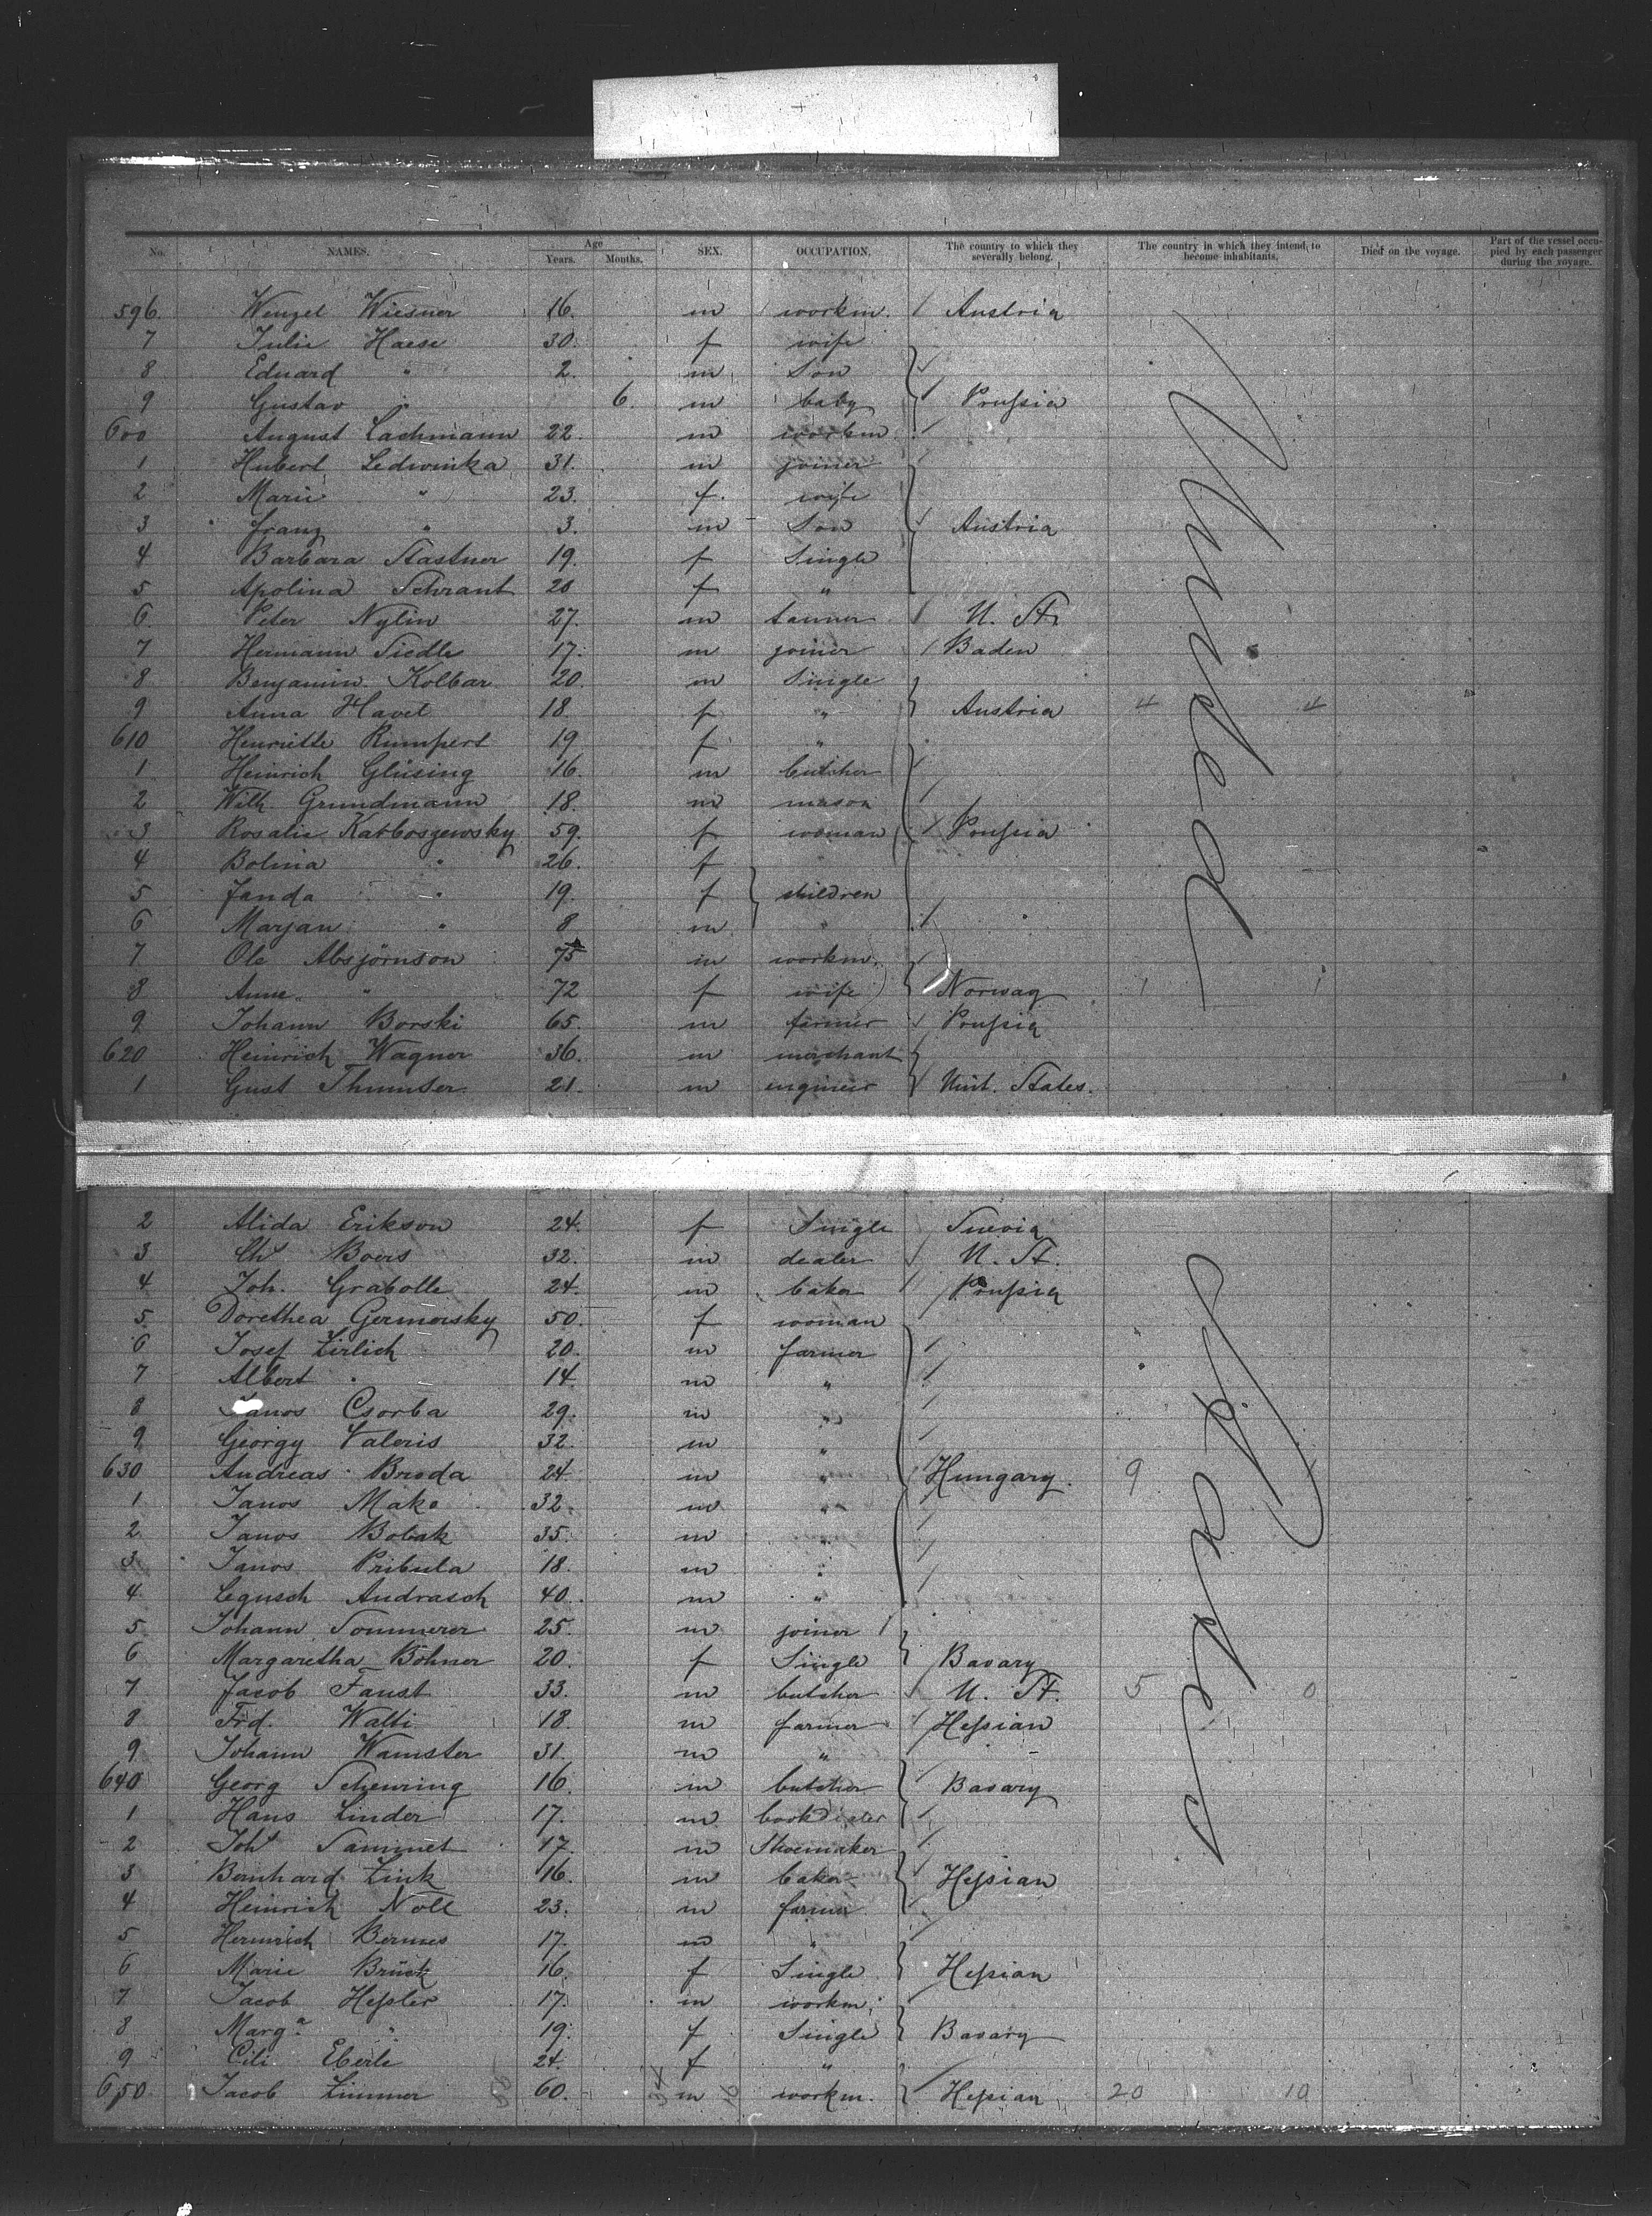 No. NAMES. Age Years. Months. SEX. OCCUPATION. The country to which they severally belong. The country in which they intend to become inhabitants. Died on the voyage. Part of the vessel occupied by each passenger during the voyage.
596. Wenzel Wiesner 16. m workm. Austria
7 Julie Haese 30. f wife
8 Eduard " 2. m Son
9 Gustav " 6. m baby Prussia
600 August Lachmann 22. m workm.
1 Hubert Ledwinka 31. m joiner
2 Marie " 23. f. wife
3 Franz " 3. m Son Austria
4 Barbara Stastner 19. f Single
5 Apolina Schrant 20 f "
6 Peter Nylin 27. m tanner U. St.
7 Hermann Siedle 17. m joiner Baden
8 Benjamin Kolbar 20. m Single
9 Anna Havet 18. f " Austria 4 4
610 Henriette Rumpert 19 f "
1 Heinrich Glüsing 16. m butcher
2 Wilh. Grundmann 18. m mason
3 Rosalie Karboszewsky 59. f woman Prussia
4 Bolina " 26. f
5 Janda " 19. f children
6 Marjan " 8 m "
7 Ole Absjörnson 75 m workm.
8 Anne " 72 f wife Norway 1 1
9 Johann Borski 65. m farmer Prussia
620 Heinrich Wagner 36. m merchant
1 Gust Thumser 21. m engineer Unit. States.
United
2 Alida Erikson 24. f Single Suevia
3 Chr Boers 32. m dealer U. St.
4 Joh. Grabolle 24. m baker Prussia
5. Dorethea Germersky 50. f woman
6 Josef Zirlich 20. m farmer
7 Albert " 14. m "
8 Janos Csorba 29. m "
9 Georgy Valeris 32. m "
630 Andreas Broda 24. m " Hungary. 9
1 Janos Mako 32. m "
2 Janos Bobak 35. m "
3 Janos Pribula 18. m "
4 Legusch Andrasch 40. m "
5 Johann Sommerer 25. m joiner
6 Margaretha Böhner 20. f Single Bavary
7 Jacob Faust 33. m butcher U. St. 5 0
8 Frd. Walti 18. m farmer Hessian
9 Johann Wamster 31. m "
640 Georg Scheuring 16. m butcher Bavary
1 Hans Linder 17. m bookdealer
2 Joh Sammet 17. m Shoemaker
3 Bernhard Zink 16. m baker Hessian
4 Heinrich Noll 23. m farmer
5 Heinrich Bermes 17. m "
6 Marie Brück 16. f Single Hessian
7 Jacob Hessler 17. m workm.
8 Marga " 19. f Single Bavary
9 Cili Eberle 24. f "
650 Jacob Zimmer 60. m workm. Hessian 20 10
States